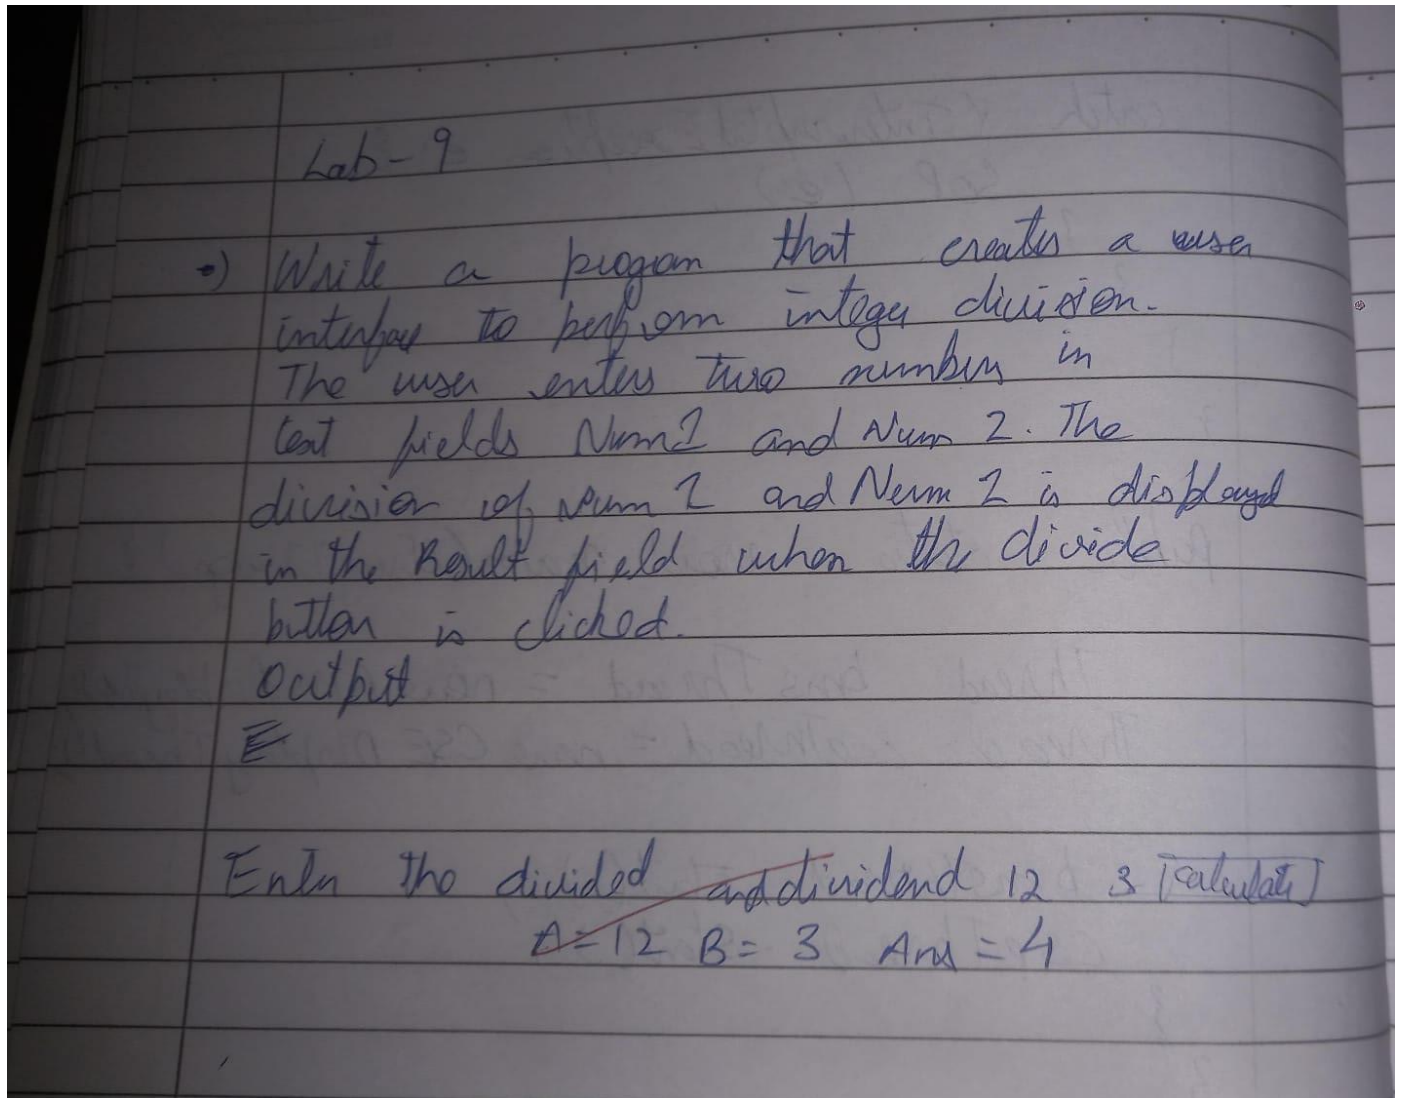 Lab - 9
•) Write a program that creates a user
interface to perform integer division.
The user enters two numbers in
text fields Num 1 and Num 2. The
division of Num 1 and Num 2 is displayed
in the Result field when the divide
button is clicked.
Output
Enter the divided and dividend 12 3 calculate
A = 12 B = 3 Ans = 4